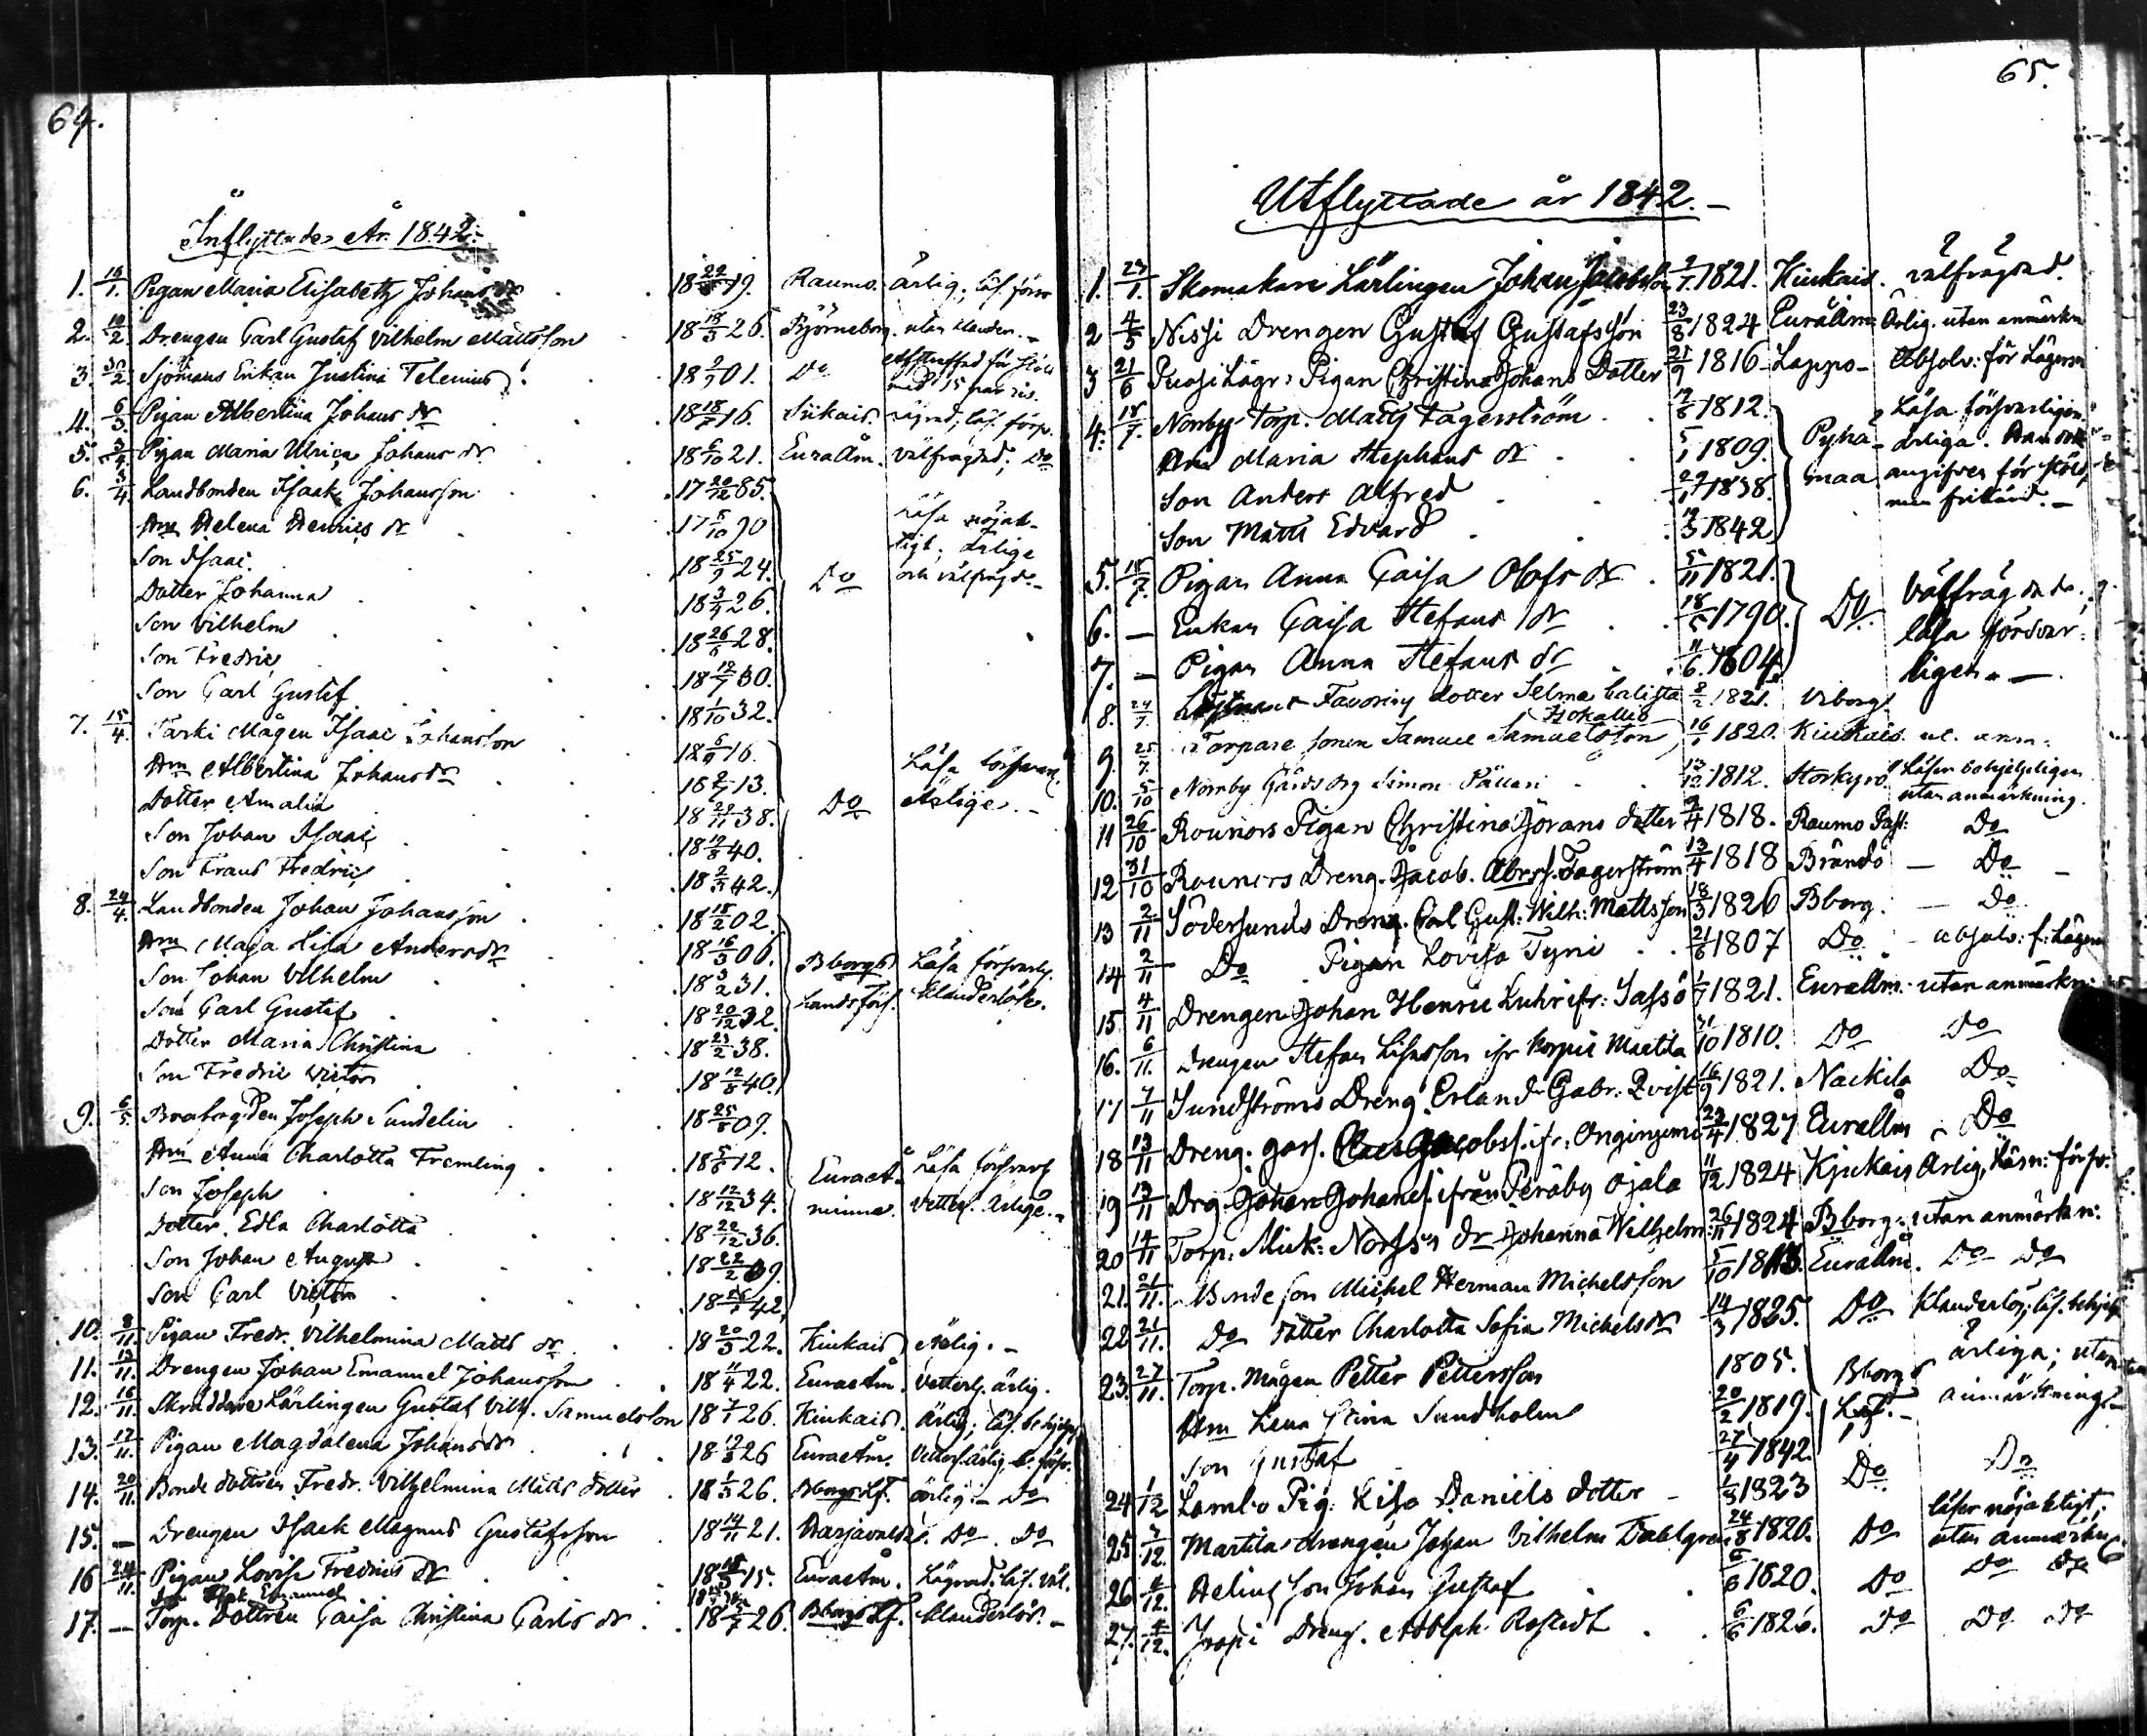 64.
Inflyttade År 1842.
1. 16/1. Pigan Maria Elisabeth Johans dr 18 22/5 19. Raumo. ärlig; läs. försv
2. 10/2. Drengen Carl Gustaf Vilhelm Mattsson 18 18/3 26. Björneborg. utan klander. –
3. 30/2 Sjömans Enkan Justina Telenius 18 2/9 01. Do afstraffad för stöld med 15 par ris.
4. 6/3 Pigan Albertina Johans dr 18 18/2 16. Kiukais. lägrad, läs. försv.
5. 3/4. Pigan Maria Ulrica Johans dr 18 6/10 21. EuraÅm. välfrägdad; Do
6. 3/4. Landbonden Isaak Johansson 17 20/12 85.
Hu Helena Henrics dr 17 5/10 90 Läsa nöjak-
Son Isaac 18 25/9 24. tigt; ärlige
Dotter Johanna 18 3/4 26. Do och välfrägd. –
Son Vilhelm 18 26/5 28.
Son Fredric 18 12/7 30.
Son Carl Gustaf 18 1/10 32.
7. 15/4. Tarki Mågen Isaac Johansson 18 6/9 16.
Hu Albertina Johans dr 18 2/7 13. Läsa försvarl.
Dotter Amalia 18 29/11 38. Do Ärlige. –
Son Johan Isaac 18 19/8 40.
Son Frans Fredric 18 2/3 42.
8. 24/4. Landbonden Johan Johansson 18 18/2 02.
Hu Maja Lisa Anders dr 18 16/5 06. Bborgs Läsa försvarl.
Son Johan Vilhelm 18 3/2 31. Landsförs. klanderlöse.
Son Carl Gustaf 18 20/12 32.
Dotter Maria Christina 18 23/2 38.
Son Fredric Victor 18 12/8 40.
9. 6/5. Joseph Sundelin 18 25/8 09.
Hu Anna Charlotta Fremling 18 5/8 12. EuraÅ- Läsa försvarl
Son Joseph 18 12/12 34. minne. Vetterl. ärlige. –
Dotter Edla Charlotta 18 22/12 36.
Son Johan August 18 22/2 39.
Son Carl Victor 18 26/2 42.
10. 8/11. Pigan Fredr. Vilhelmina Matts dr 18 20/5 22. Kiukais Ärlig. –
11. 13/11. Drengen Johan Emanuel Johansson 18 11/4 22. EuraÅm. Vetterl. ärlig.
12. 16/11. Skräddare Lärlingen Gustaf Vilh. Samuelsson 18 7/1 26. Kiukais. Ärlig; läs. behjelpl
13. 17/11. Pigan Magdalena Johans dr 18 19/3 26 EuraÅm. Vetterl. ärlig. l. försv.
14. 20/11. Bonde dottren Fredr. Vilhelmina Matts dotter 18 1/3 26. Bborgs Lf. ärlig. – Do
15. – Drengen Isack Magnus Gustafsson 18 14/11 21. Harjavalda. Do Do
16 24/11. Pigan Lovisa Fredrics dr 18 18/5 15. EuraÅm. Lägrad. läs. väl.
Son Isak Emanuel
17. – Torp. Dottren Caisa Christina Carls dr 18 5/7 26. Bborgs Lf. klanderlös. –
65.
Utflyttade år 1842. –
1. 27/1. Skomakare Lärlingen Johan Jacobsson 2/7 1821. Kiukais. välfrägdad.
2 4/5 Nissi Drengen Gustaf Gustafsson 23/8 1824 Euraåm Ärlig. utan anmärkn
3 21/6 Lägr. Pigan Christina Johans Dotter 21/9 1816 – Lappo – Absolv: för Lägersm
4. 18/7. Norrby Torp. Matts Fagerström 12/6 1812. Läsa försvarligen
Hu Maria Stephans dr 5/1 1809. Pyhä- ärliga. Han dock
Son Anders Alfred 29/11 1838. maa angifven för stöld,
Son Matts Edvard 19/3 1842. men frikänd. –
5. 18/7. Pigan Anna Caisa Olofs dr 5/11 1821. Välfrägdade.
6. – Enkan Caisa Stefans dr 18/5 1790. Do läsa försvar-
7. – Pigan Anna Stefans dr 11/6 1804. ligen. –
8. 24/7. Favorin dotter Selma Calista 2/2 1821. Viborg.
9. 25/7. Torpare sonen Samuel Samuelsson 16/1 1820. Kiukais. ut. anm.
10. 5/10 Norrby Gårds drg Simon Pällari 13/12 1812. Storkyro Läser behjelpligen utan anmärkning.
11 26/10 Rounors Pigan Christina Görans dotter 9/4 1818. Raumo Past: Do
12 31/10 Rouners Dreng. Jacob. Abrss. Fagerström 13/4 1818 Brändö – Do –
13 2/11 Södersunds Dreng. Carl Gust: Wilh: Mattsson 18/3 1826 Bborg. – Do
14 2/11 Do Pigan Lovisa Tyni 21/6 1807 Do – absolv: f: Lägers
15 4/11 Drengen Johan Henric Luhr ifr: Sassö 1/7 1821. Euraåm. utan anmärkn:
16. 6/11. Drengen Stefan ifr Korpis Martila 31/10 1810. Do Do
17 7/11 Sundströms Dreng Erland Gabr: Qvist 16/9 1821. Nackila Do
18 13/11 Dreng: goss. Jacobss. ifr: 23/4 1827 Euraåm – Do
19 13/11 Drg. Johan Johans. ifrån Peräby Ojala 11/12 1824 Kjukais Ärlig, Läsn: försv:
20 14/11 Torp: Mick: Norss:s dr Johanna Wilhelm: 26/11 1824 Bborg: utan anmärkn:
21. 21/11. Bonde son Michel Herman Michelsson 5/10 1818. Euraåm. Do Do
22 21/11. Do dotter Charlotta Sofia Michels dr 14/3 1825. Do Klanderlös; läs. behjelpl
23. 27/11. Torp. Mågen Petter Pettersson 1805. Bborgs ärliga; utan
Hu Lena Stina Sundholm 20/2 1819. Lf. – anmärkning –
Son Gustaf 27/4 1842.
24 1/12 Lambo Pig: Lisa Daniels dotter – 1/8 1823 Do Do
25 4/12. Martila drengen Johan Vilhelm Dahlgren 24/8 1820. Do läser nöjaktigt; utan anmärkn.
26 4/12. Helius Son Johan Gustaf 6/8 1820. Do Do Do
27. 4/12. Dreng. Adolph Rostedt 6/6 1826. Do Do Do